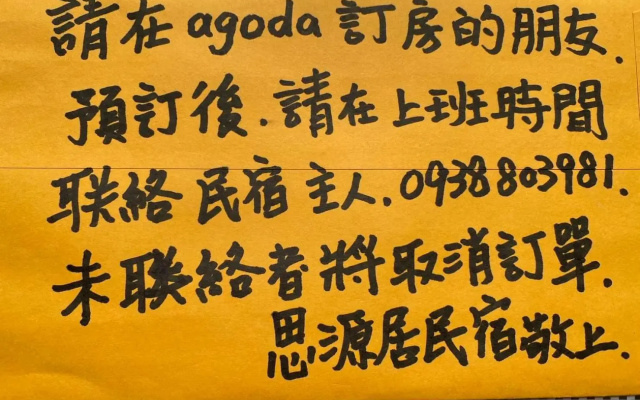 請在agoda訂房的朋友.
預訂後.請在上班時間
联絡民宿主人.0938803981.
未联絡者將取消訂單.
思源居民宿敬上.